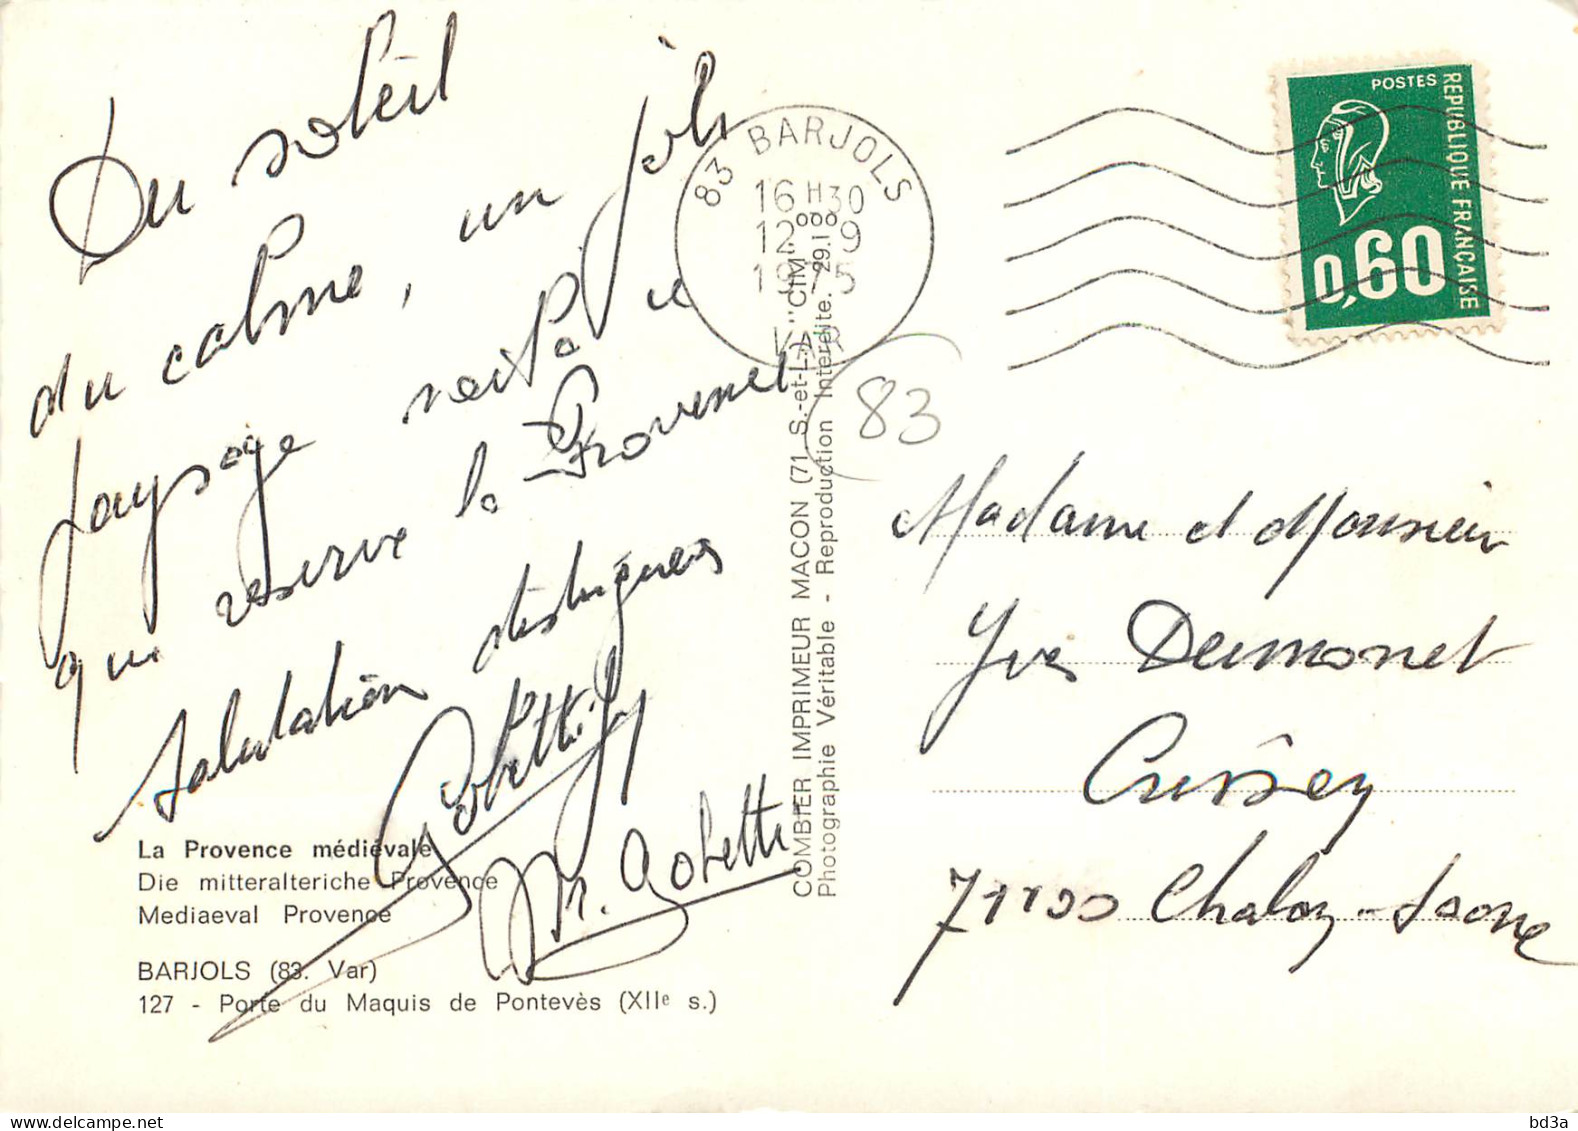 Du soleil
du calme, un joli
paysage voilà ce
que réserve la Provence
salutation distinguées
Gobetti
M. Gobetti
La Provence médiévale
Die mitteralteriche Provence
Mediaeval Provence
BARJOLS (83. Var)
127 - Porte du Maquis de Pontevès (XIIe s.)
COMBIER IMPRIMEUR MACON (71 S.-et-L.) "CIM"
Photographie Véritable - Reproduction Interdite. 29.1
83 BARJOLS
16 H 30
12 9
1975
VAR
83
POSTES
REPUBLIQUE FRANÇAISE
0,60
Madame et Monsieur
Yves Dumonet
Crissey
71100 Chalon-Saone
bd3a